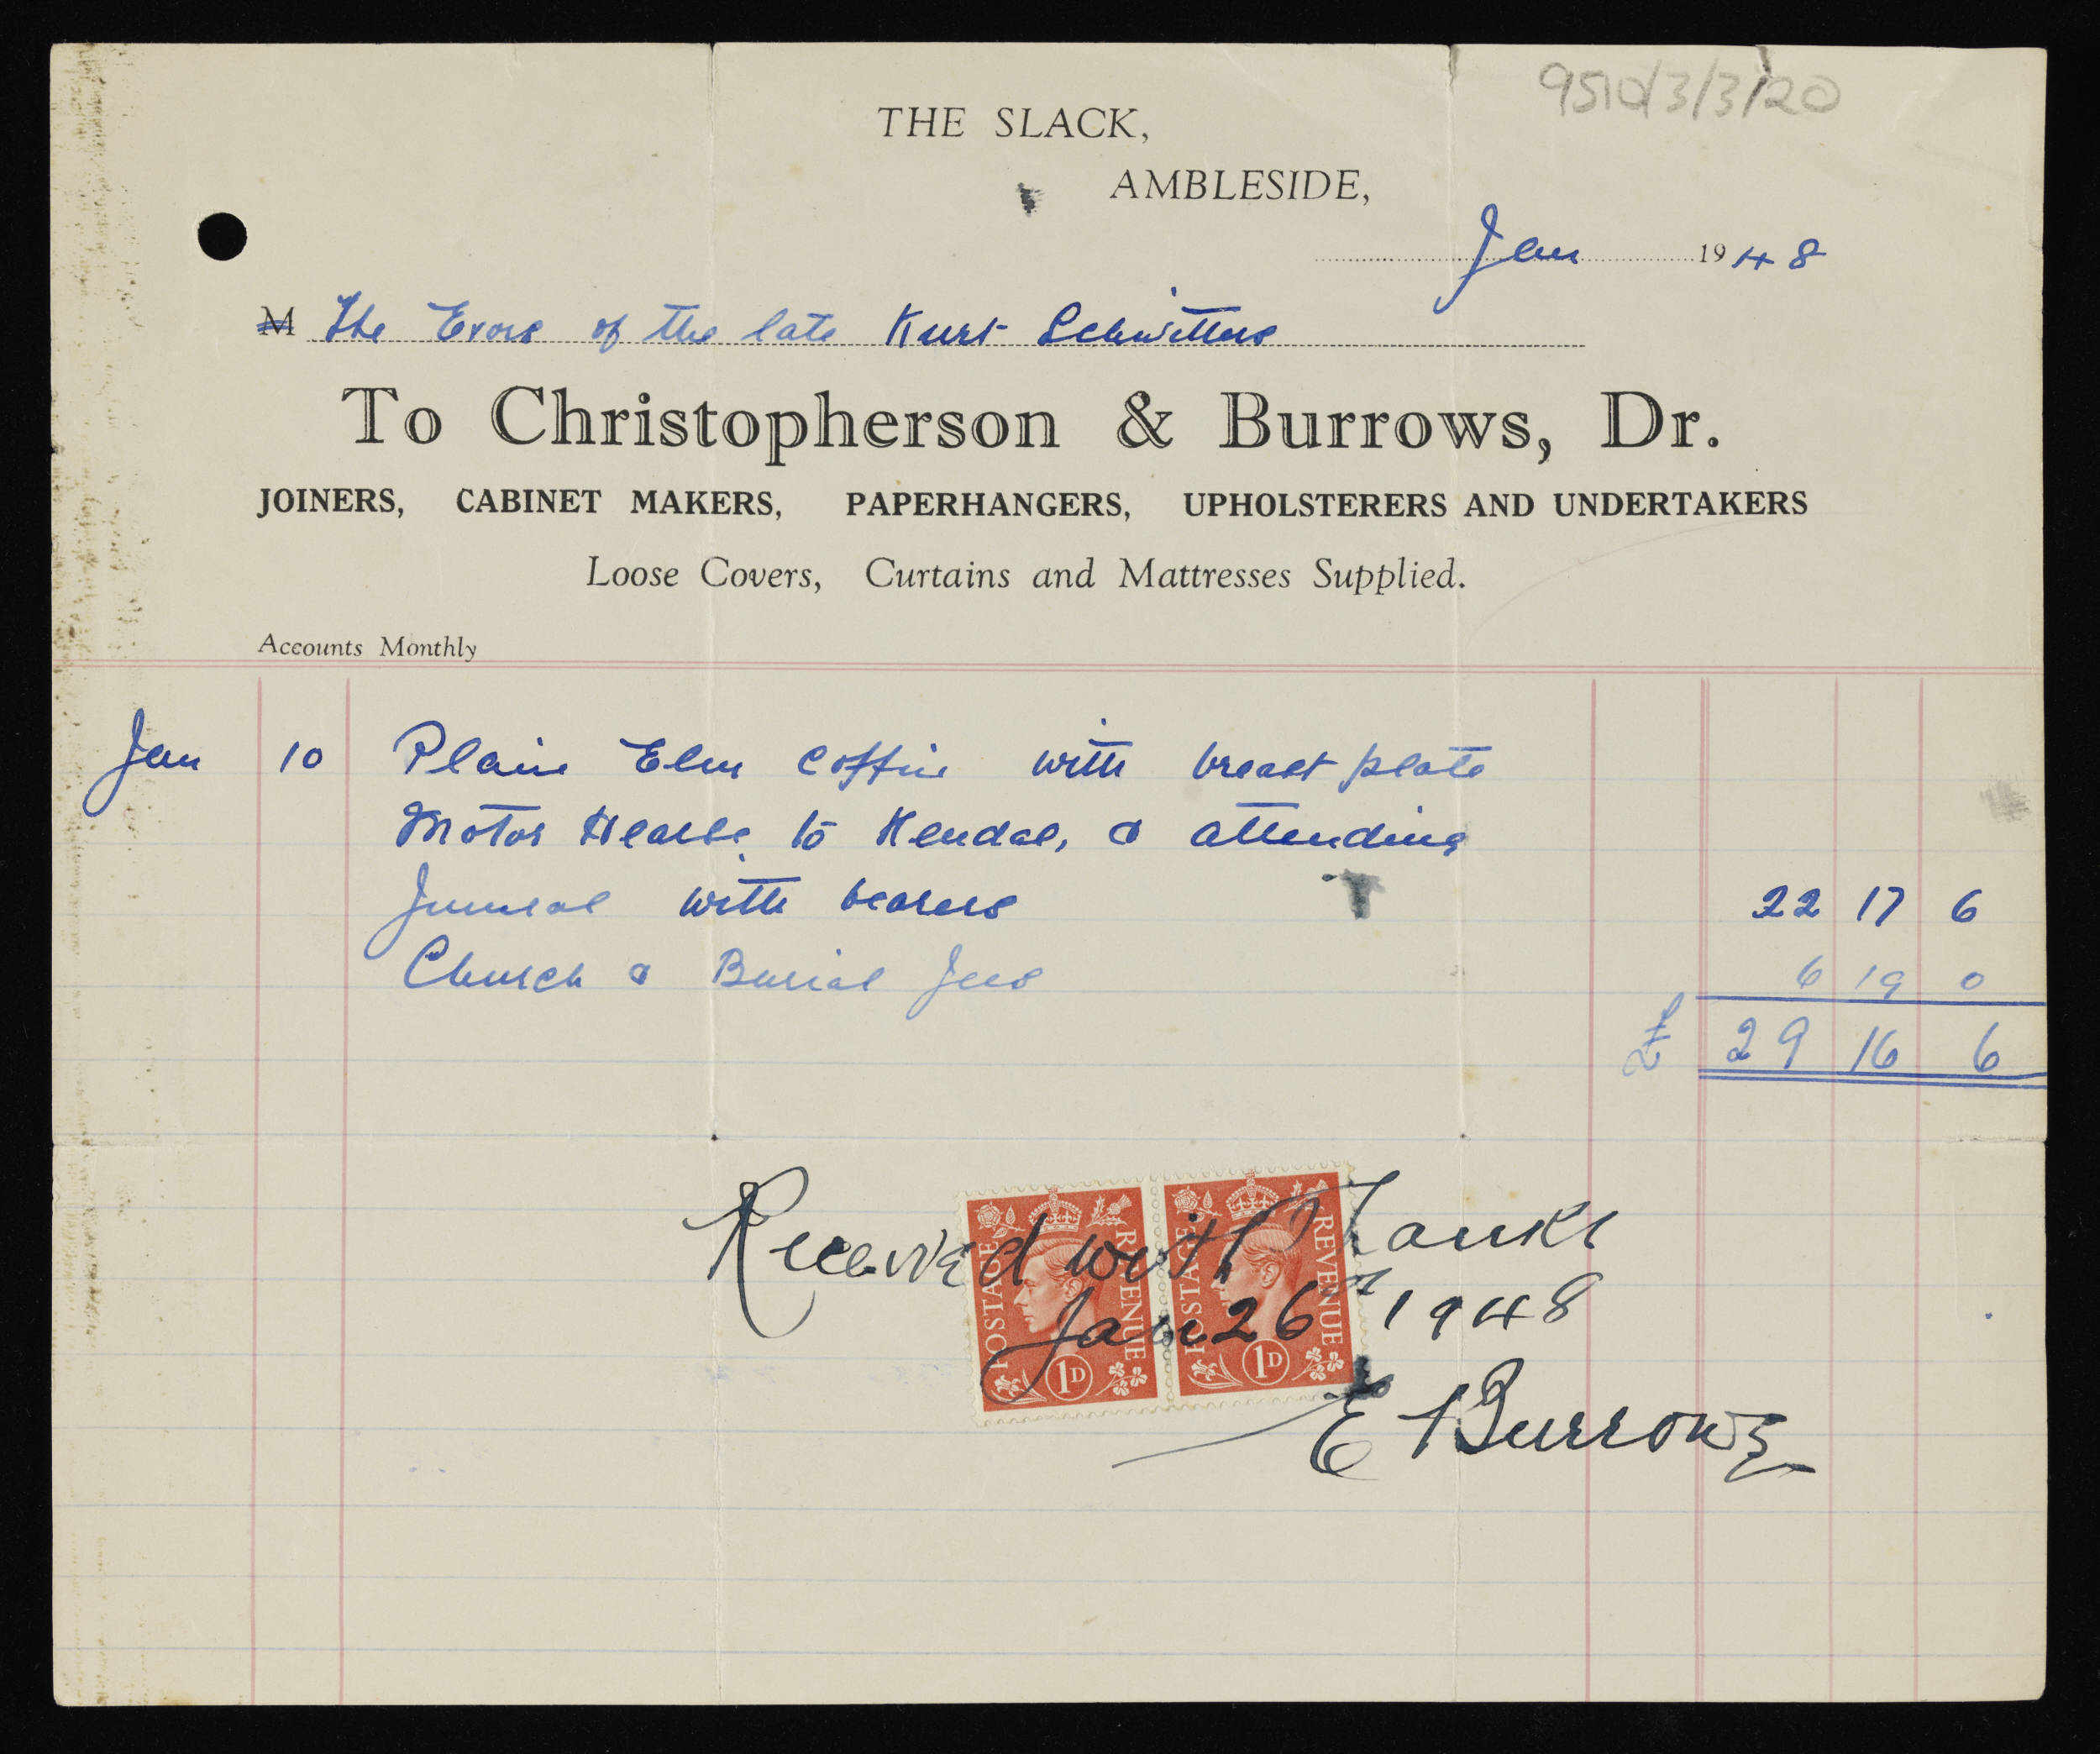 9510/3/3/20
THE SLACK,
AMBLESIDE,
Jan 1948
M The Exors of the late Kurt Schwitters
To Christopherson & Burrows, Dr.
JOINERS, CABINET MAKERS, PAPERHANGERS, UPHOLSTERERS AND UNDERTAKERS
Loose Covers, Curtains and Mattresses Supplied.
Accounts Monthly
Jan 10 Plain Elm Coffin with breast plate
Motor Hearse to Kendal, & attending
funeral with bearers 22 17 6
Church & Burial fees 6 19 0
£ 29 16 6
Received with Thanks
Jan 26th 1948
E Burrows
POSTAGE REVENUE 1D
POSTAGE REVENUE 1D